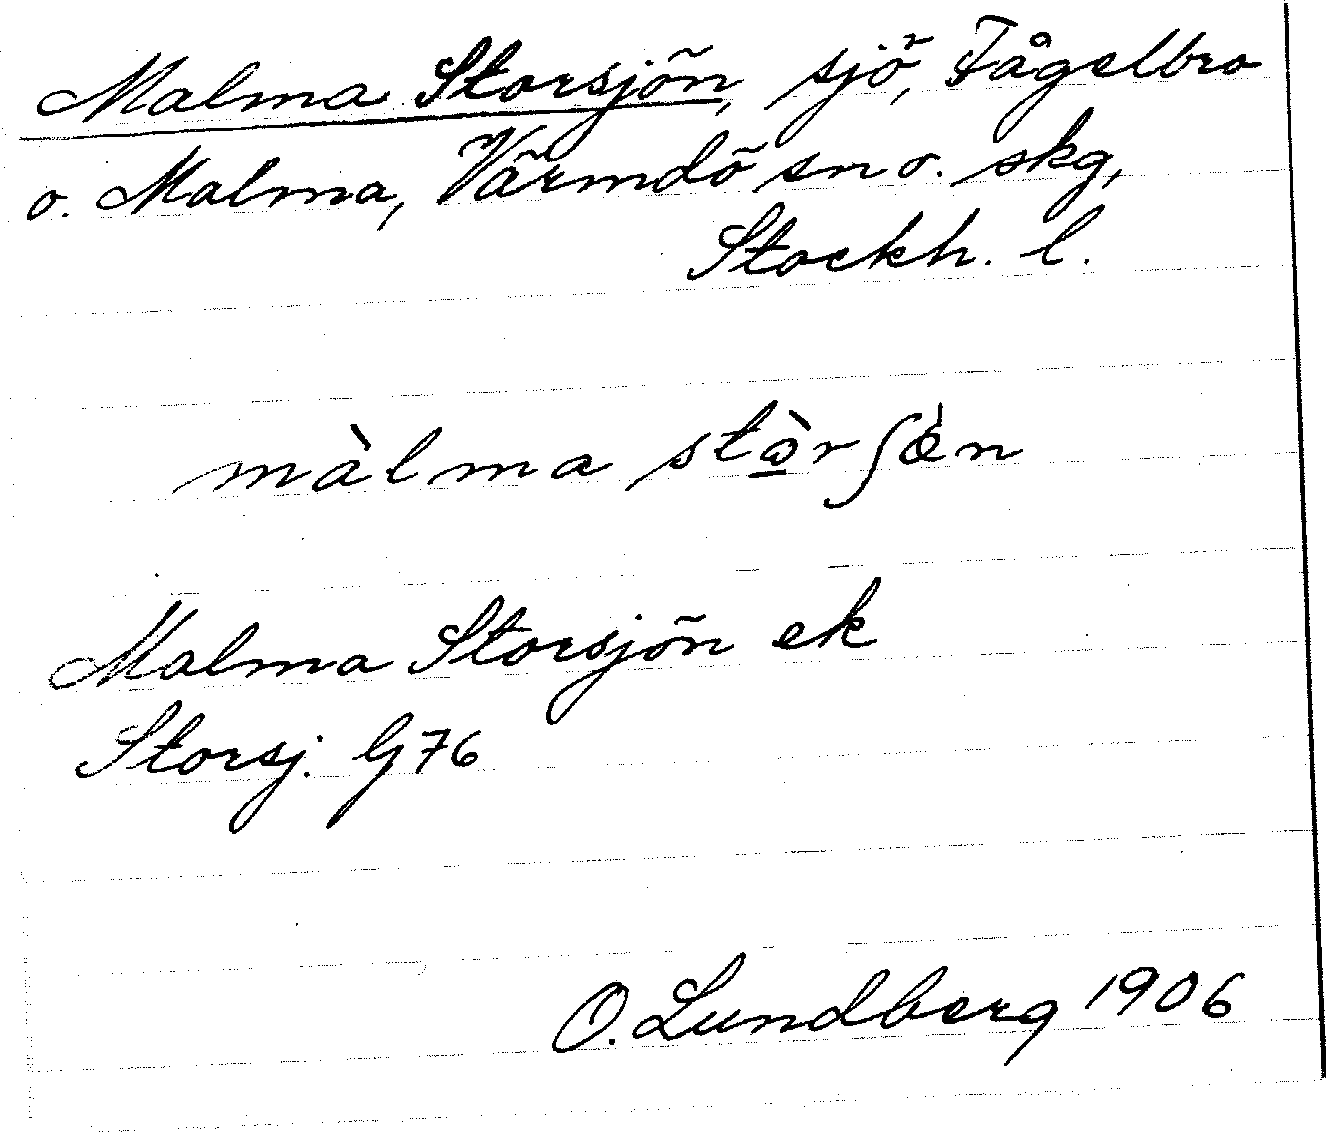 Malma Storsjön, sjö, Fågelbro
o. Malma, Värmdö sn o. skg,
Stockh. l.
màlma stò̱rʃǿn
Malma Storsjön ek
Storsj. G 76
O. Lundberg 1906